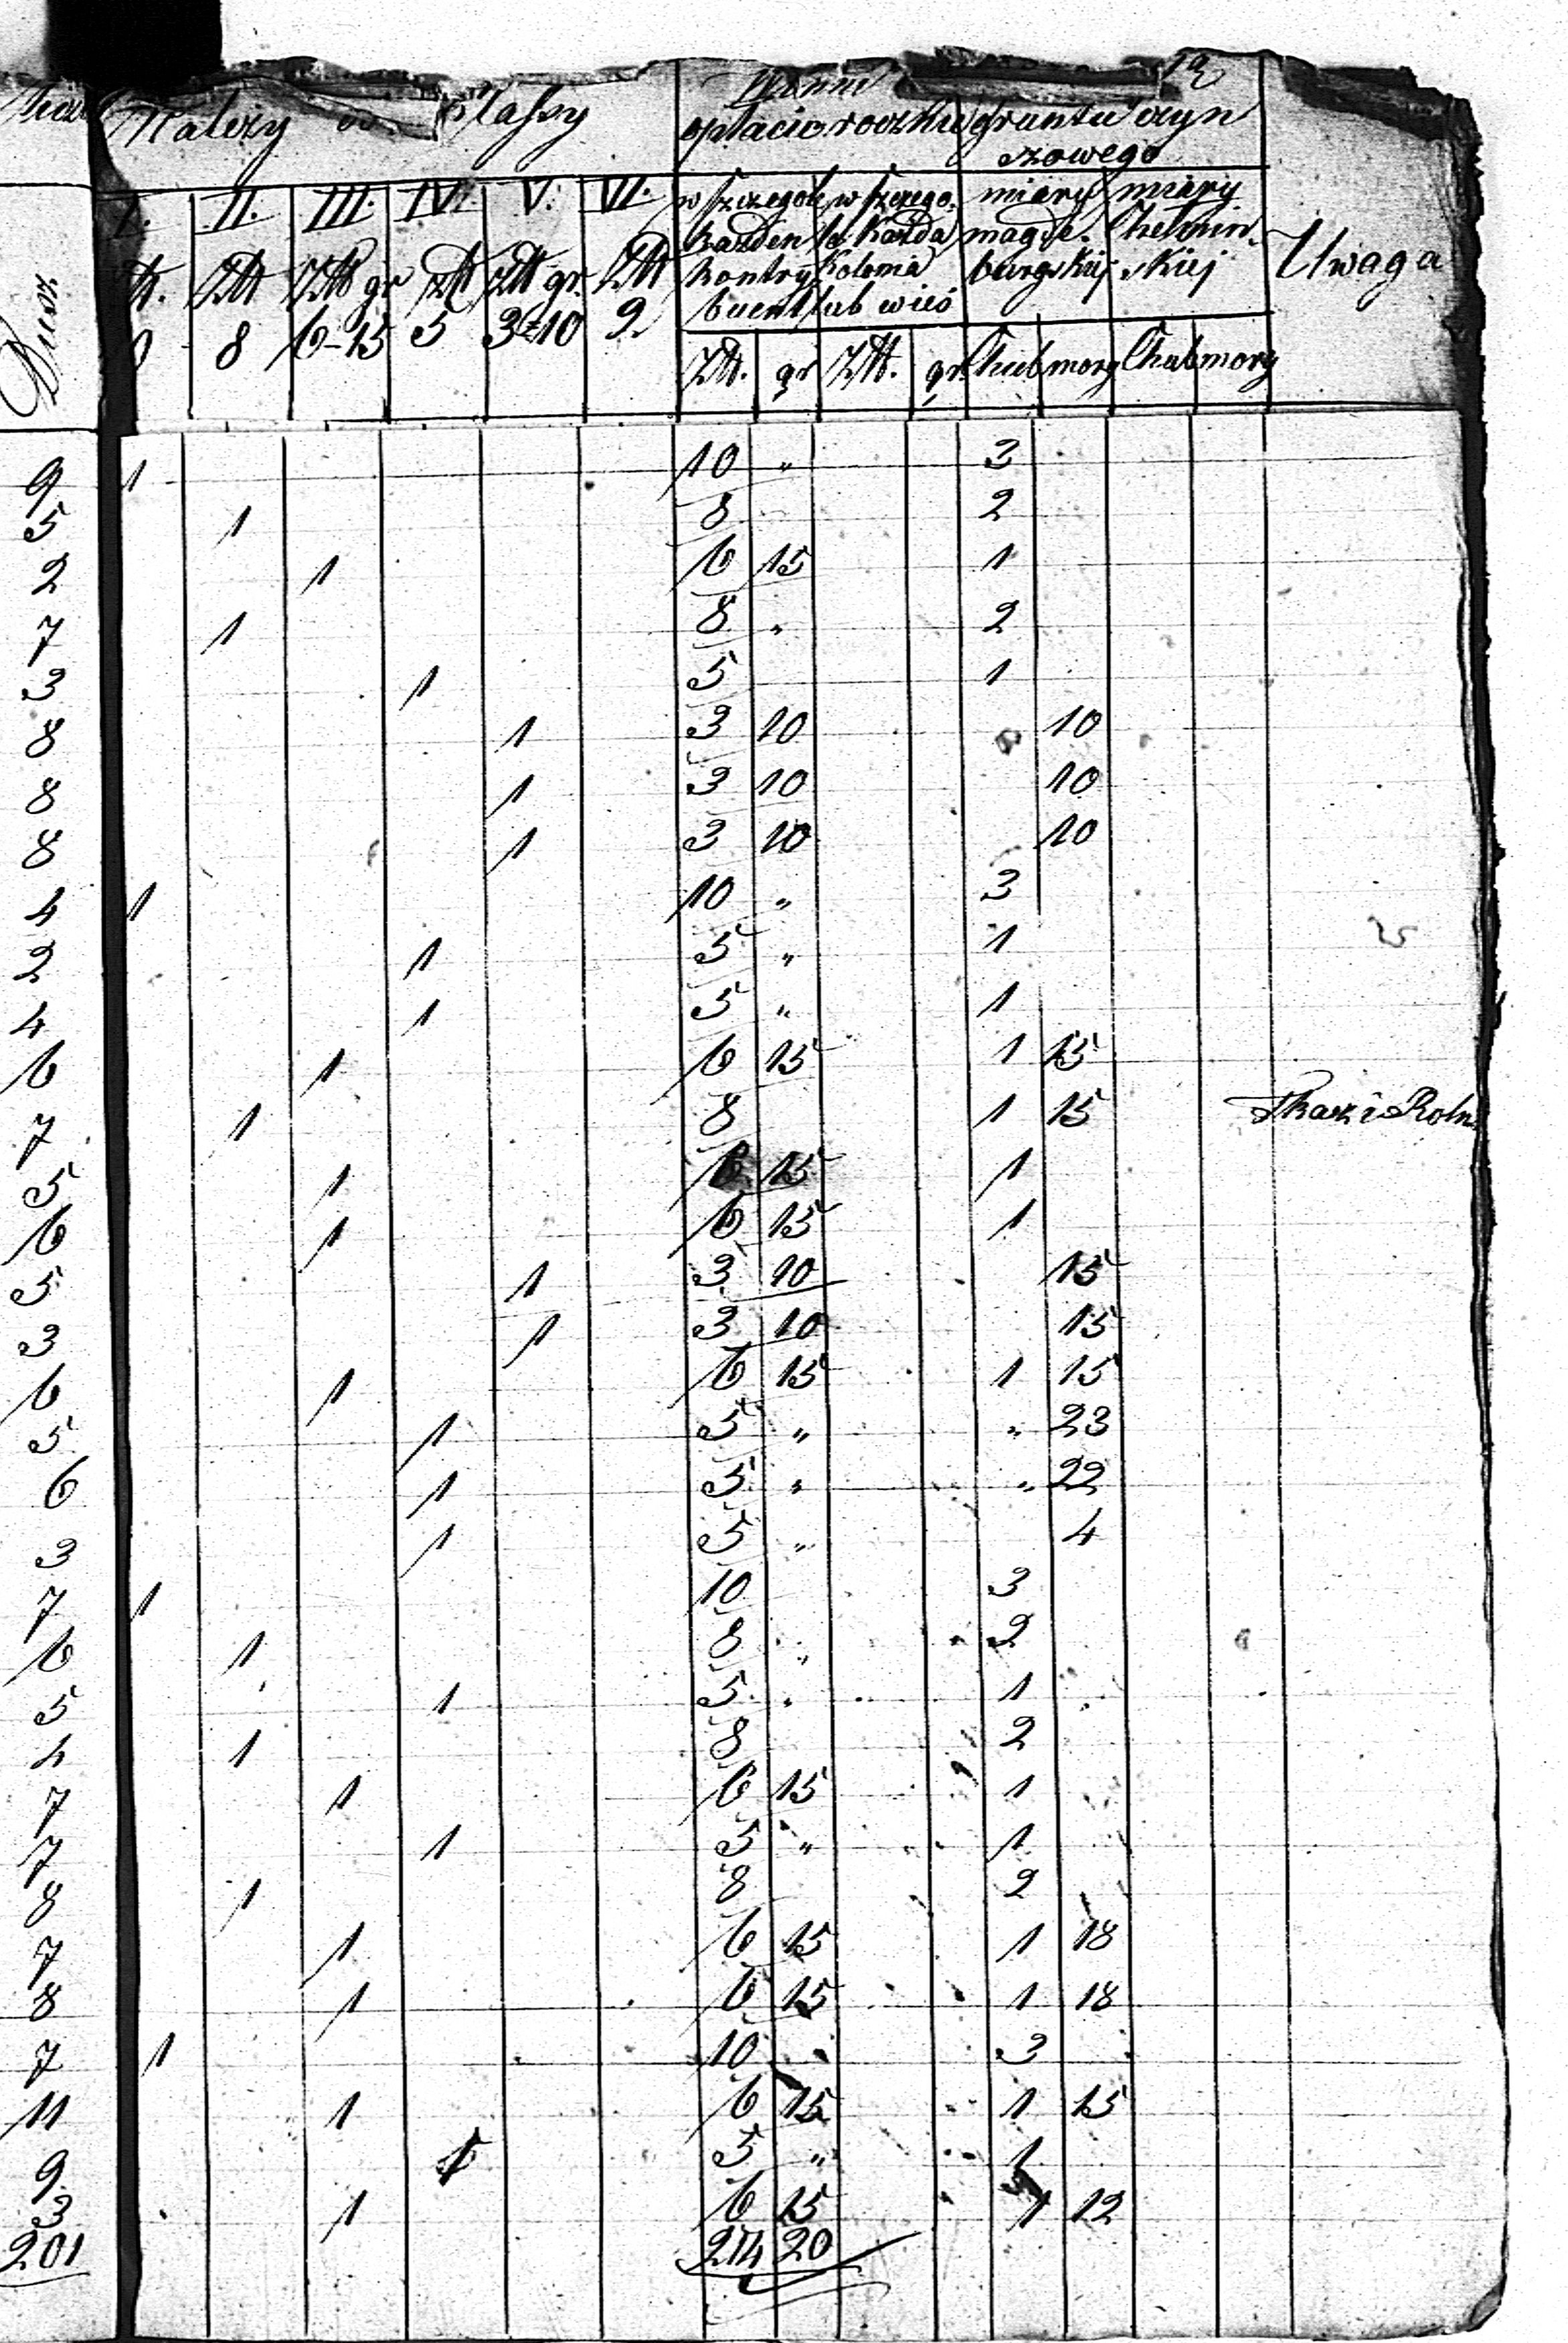 12
Należy do Klassy
opłacić roczku gruntu czyn
szowego
I. II. III. IV. V. VI. w szczególe w szczegó- miary miary
każden le każda magde- Chełmin-
kontry- Kolonia burgskiej skiej Uwaga
buent lub wieś
Dusz
Złt Złt gr Złt Złt gr. Złt
8 6-15 5 3=10 2
Złt. gr Złt. gr. Chub morg Chub morg
9 1 10 " 3
5 1 8 2
2 1 6 15 1
7 1 8 " 2
3 1 5 1
8 1 3 10 10
8 1 3 10 10
8 1 3 10 10
4 1 10 " 3
2 1 5 " 1
4 1 5 " 1
6 1 6 15 1 15
7 1 8 1 15 Tkacz i Roln
5 1 6 15 1
6 1 6 15 1
5 1 3 10 15
3 1 3 10 15
6 1 6 15 1 15
5 1 5 " " 23
6 1 5 " " 22
3 1 5 " 4
7 1 10 3
6 1 8 " 2
5 1 5 " 1
4 1 8 2
7 1 6 15 1
7 1 5 " 1
8 1 8 2
7 1 6 15 1 18
8 1 6 15 1 18
7 1 10 " 3
11 1 6 15 1 15
9 1 5 " 1
3 1 6 15 1 12
201 214 20